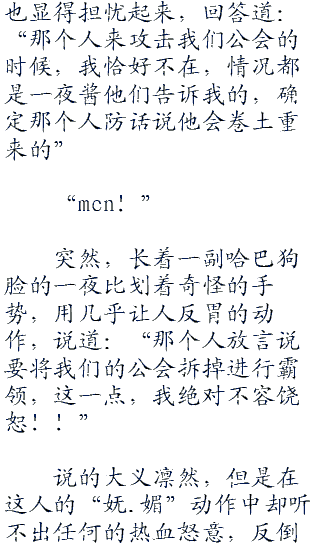 也显得担忧起来，回答道：
“那个人来攻击我们公会的
时候，我恰好不在，情况都
是一夜酱他们告诉我的，确
定那个人防话说他会卷土重
来的”
“mcn！”
突然，长着一副哈巴狗
脸的一夜比划着奇怪的手
势，用几乎让人反胃的动
作，说道：“那个人放言说
要将我们的公会拆掉进行霸
领，这一点，我绝对不容饶
恕！！”
说的大义凛然，但是在
这人的“妩.媚”动作中却听
不出任何的热血怒意，反倒